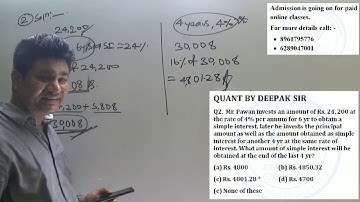 ② Soln:—
24,200
= 24%
24,200
5,808
30,008
4 years, 4%
30,008
16% of 30,008
= 4801.28
Admission is going on for paid
online classes.
For more details call: -
• 8961795776
• 6289047001
QUANT BY DEEPAK SIR
Q2. Mr. Pawan invests an amount of Rs. 24, 200 at
the rate of 4% per annum for 6 yr to obtain a
simple interest, later he invests the principal
amount as well as the amount obtained as simple
interest for another 4 yr at the same rate of
interest. What amount of simple interest will be
obtained at the end of the last 4 yr?
(a) Rs. 4800 (b) Rs. 4850.32
(c) Rs. 4801.28 * (d) Rs. 4700
(e) None of these